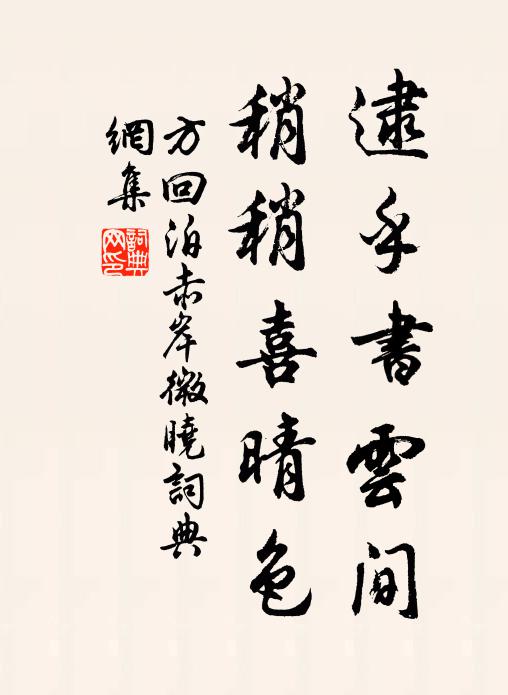 逮乎書雲间
稍稍喜晴色
方回泊赤岸微曉詞典
網集
詞典
网印